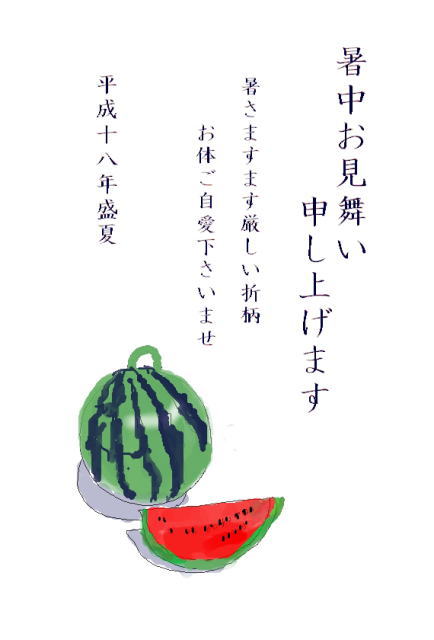 暑中お見舞い
申し上げます
暑さますます厳しい折柄
お体ご自愛下さいませ
平成十八年盛夏